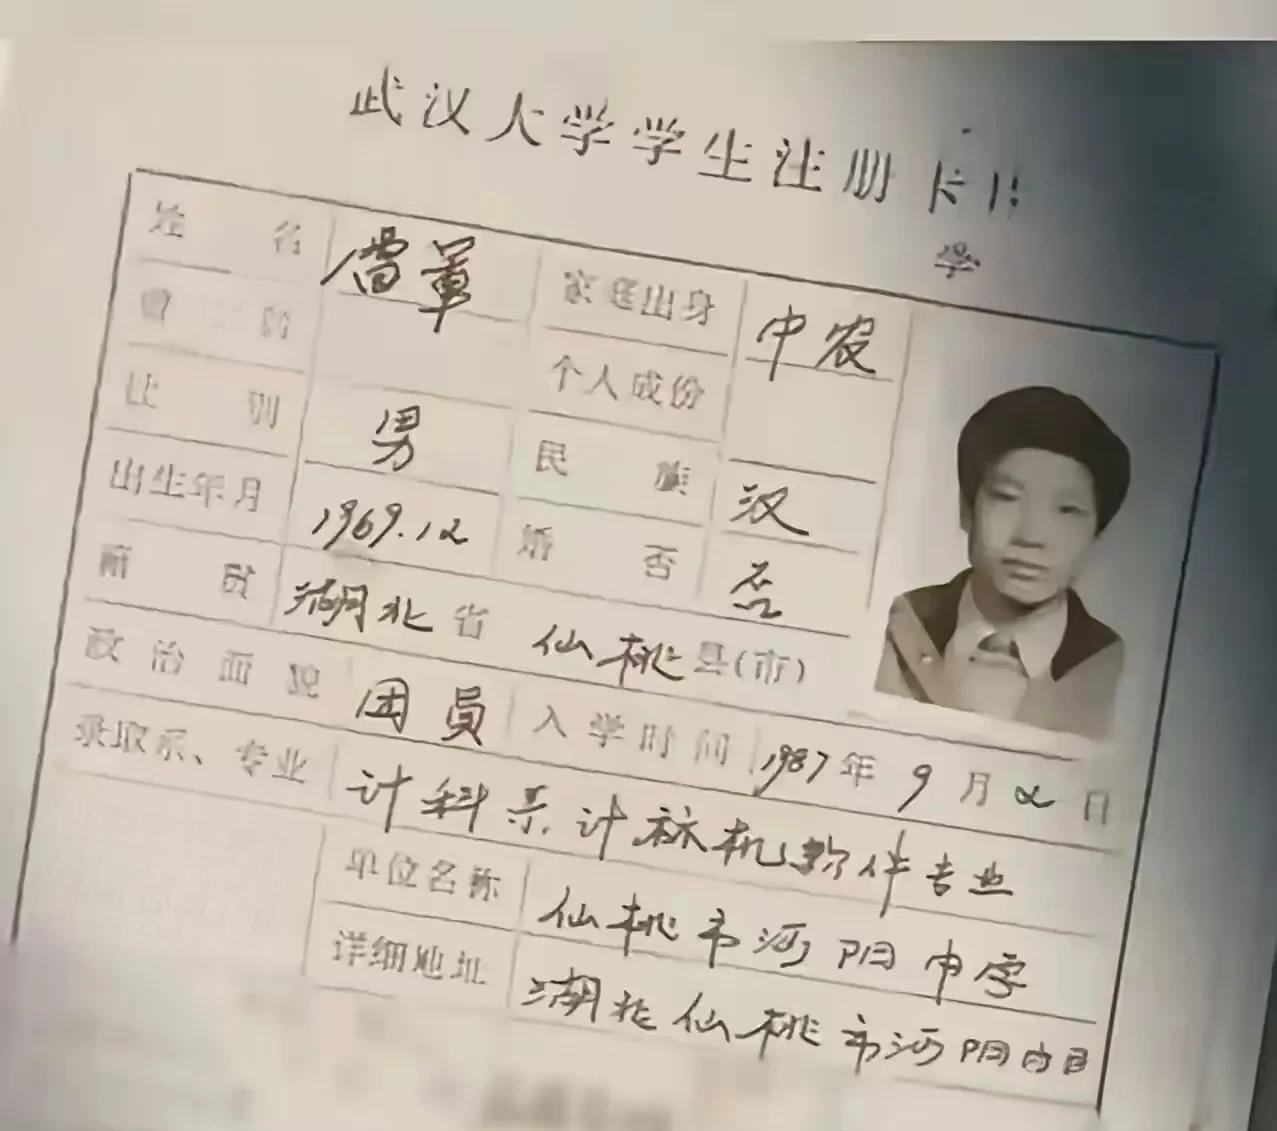 武汉大学学生注册卡
学
姓 名 雷軍 家庭出身 中农
个人成份
性 别 男 民 族 汉
出生年月 1969.12 婚 否 否
籍 贯 湖北省 仙桃县(市)
政治面貌 团员 入学时间 1987年9月2日
录取系、专业 计科系计祘机软件专业
单位名称 仙桃市沔阳中学
详细地址 湖北仙桃市沔阳